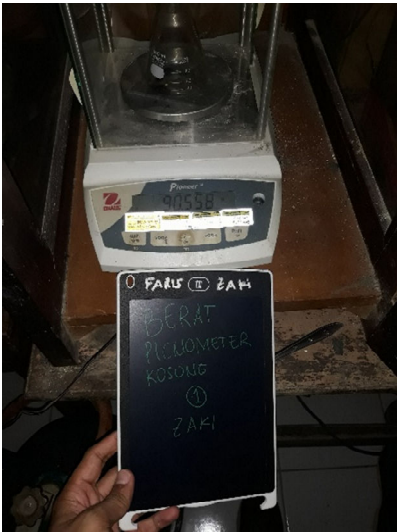 Pioneer
OHAUS
90558
FARIS II ZAKI
BERAT
PICNOMETER
KOSONG
1
ZAKI